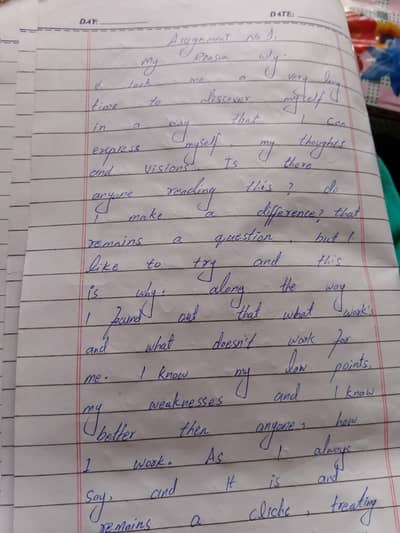 DAY:
DATE:
Assignment No 1.
My Reason Why.
It took me a very long
time to discover myself
in a way that I can
express myself, my thoughts
and visions. Is there
anyone reading this? do
I make a difference? that
remains a question. but I
like to try and this
is why. along the way
I found out that what works
and what doesn't work for
me. I know my low points,
my weaknesses and I know
better then anyone, how
I work. As I always
say, and It is and
remains a cliche, treating